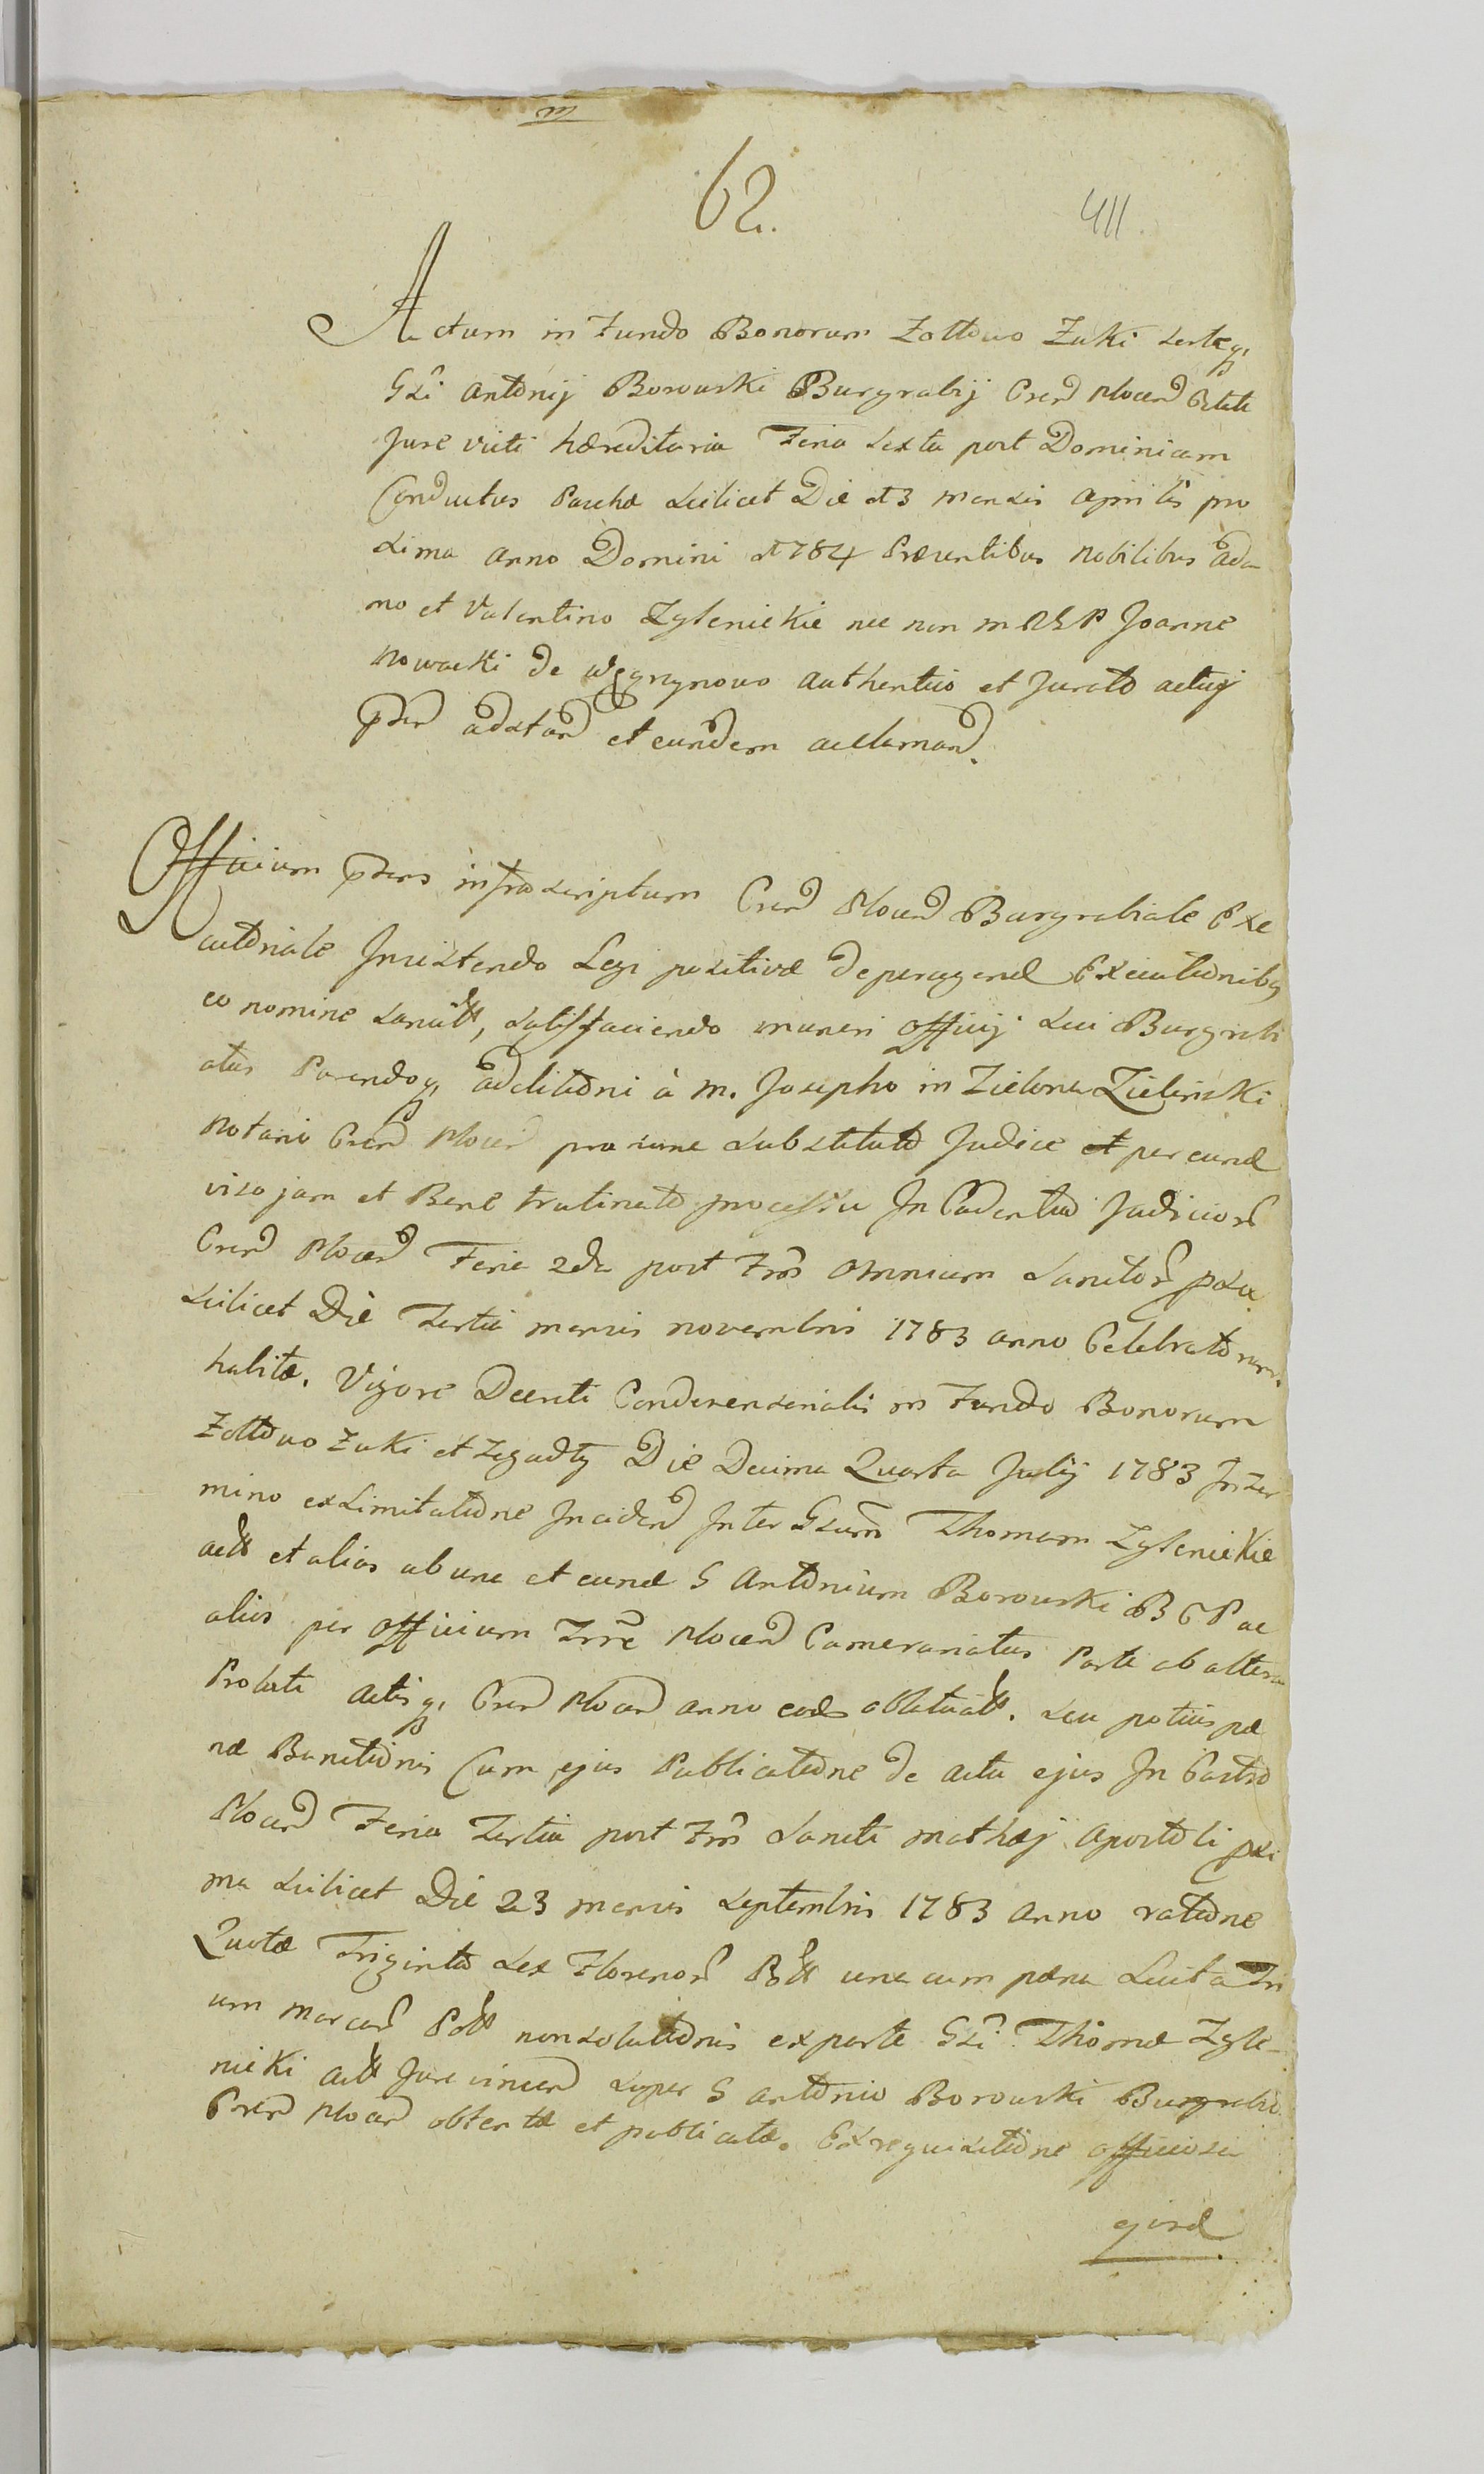 m
62.
411.
Actum in Fundo Bonorum Zottowo Zuki
Gsi Antonij Borowski Burgrabij Cren Plocen
Jure victi hæreditaria Feria sexta post Dominicam
Conductus Paschæ scilicet Die 23 mensis Aprilis pro
xima anno Domini 1784 Præsentibus Nobilibus Ada
mo et Valentino Zglenickie nec non M R S P Joanne
Nowacki de Węgrzynowo Authentico et Jurato actuj
pnti adstan et eundem acclaman.
Officium pnens infrascriptum Cren Plocen Burgrabiale Exe
cutoriale Insistendo Legi positivæ de peragend Executionibq
eo nomine sancitt, satisfaciendo muneri officij sui Burgrabi
atus Parendoq adcitationi à M. Josepho in Zielona Zielinski
Notario Cren Plocen pro nunc substituto Judice et per eund
viso jam et Bene trutinato processu In Cadentia Judicior
Cren Plocen Feria 2da post Fm Omnium Sanctor pxa
scilicet Die Tertia mensis novembris 1783 anno Celebratorum
habita. Vigore Decreti Condescensorialis in Fundo Bonorum
Zottowo Zuki et Zegadty Die Decima Quarta Julij 1783 In Ter
mino ex Limitatione Inciden Inter Gsum Thomam Zglenickie
actt et alios ab una et eund G Antonium Borowski B G P ac
alios per officium Trre Plocen Camerariatus Parte ab altera
Prolati Actisq Cren Plocen anno eod oblatatt. seu potius pæ
næ Banitionis Cum ejus Publicatione de actu ejus In Castro
Plocen Feria Tertia post Fm Sancti Mathæj Apostoli pxi
ma scilicet Die 23 mensis septembris 1783 Anno ratione
Quotæ Triginta sex Florenor Poll una cum pæna Luita Tri
um Marcar Poll non solutionis ex parte Gsi Thomæ Zgle-
nicki actt Jure vincen super G Antonio Borowski Burgrabio
Cren Plocen obtentæ et publicatæ. Ex requisitione officiosa
ejusd